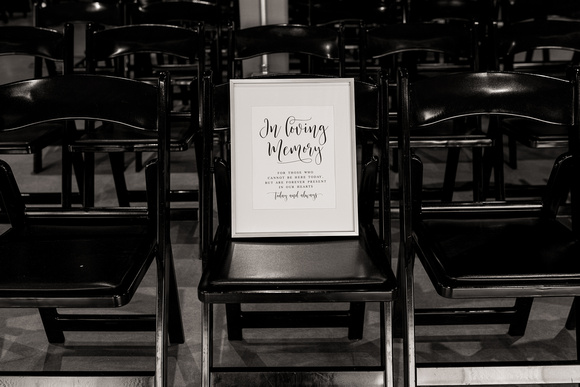 In loving
Memory
FOR THOSE WHO
CANNOT BE HERE TODAY,
BUT ARE FOREVER PRESENT
IN OUR HEARTS
Today and always